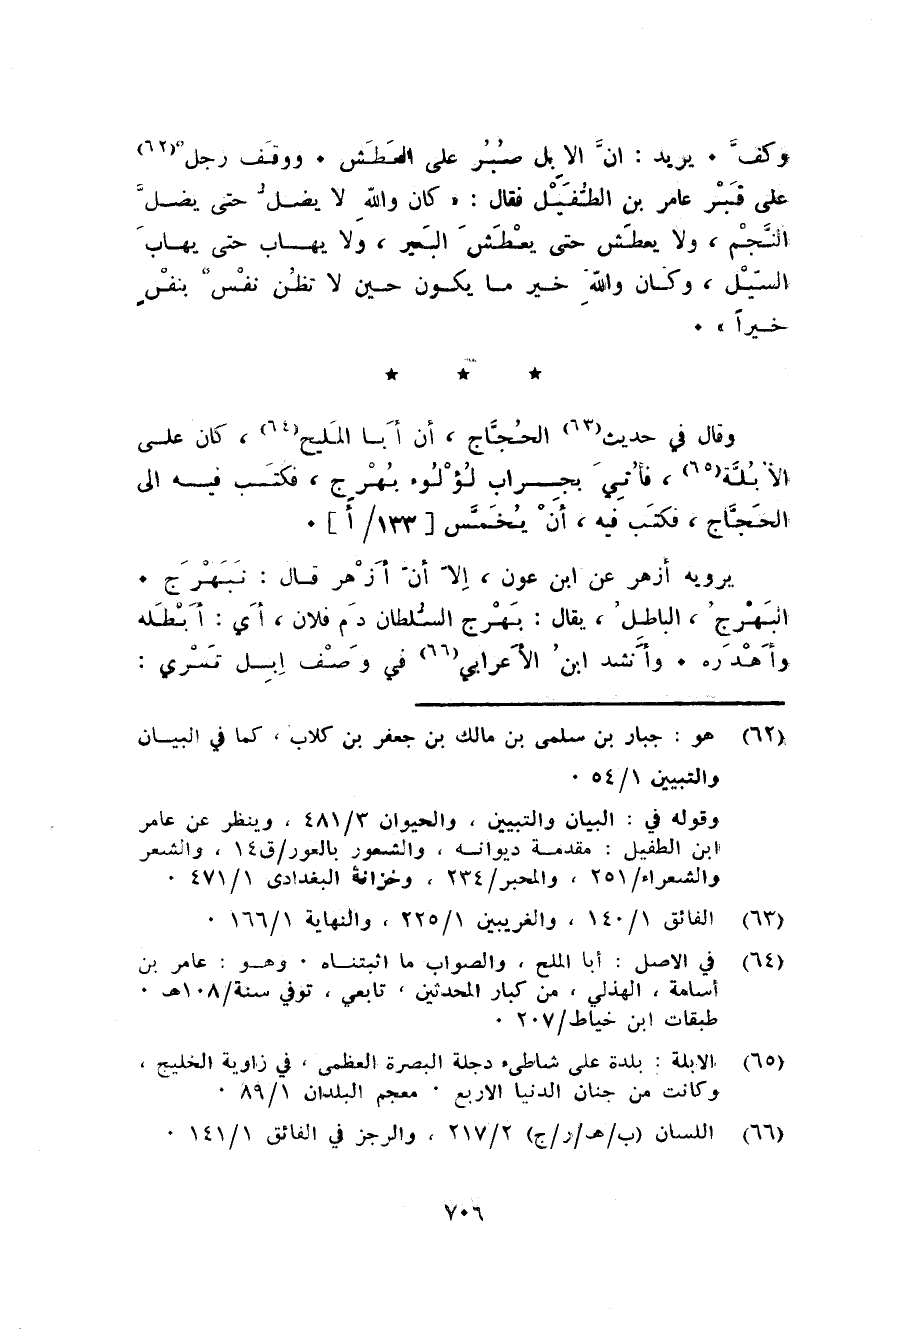 وكفَّ ٠ يريد : انَّ الابِل صُبُر على العَطَش ٠ ووقَف رجلٌ(٦٢)
على قَبْر عامر بن الطُّفَيْل فقال : « كان واللهِ لا يضلُّ حتى يضلَّ
النَّجْم ، ولا يعطَش حتى يعْطَشَ البَعير ، ولا يهاب حتى يهابَ
السَّيْل ، وكان واللهِ خير ما يكون حين لا تظُن نفْسٌ بنفْسٍ
خيراً » ٠
★ ★ ★
وقال في حديث(٦٣) الحَجَّاج ، أن أبا المَليح(٦٤) ، كان على
الأُبُلَّة(٦٥) ، فأُتِيَ بجِراب لُؤْلُوء بَهْرج ، فكتَب فيه الى
الحَجَّاج ، فكتَب فيه ، أنْ يُخَمَّس [ ١٣٣/أ ] ٠
يرويه أزهر عن ابن عون ، إلاّ أنّ أزْهر قال : نَبَهْرَج ٠
البَهْرجُ ، الباطلُ ، يقال : بَهْرج السُّلطان دَم فلان ، أي : أبْطَله
وأهْدَره ٠ وأنشد ابنُ الأعرابي(٦٦) في وَصْف إبِل تَسْري :
(٦٢) هو : جبار بن سلمى بن مالك بن جعفر بن كلاب ، كما في البيان
والتبيين ٥٤/١ ٠
وقوله في : البيان والتبيين ، والحيوان ٤٨١/٣ ، وينظر عن عامر
ابن الطفيل : مقدمة ديوانه ، والشعور بالعور/ق١٤ ، والشعر
والشعراء/٢٥١ ، والمحبر/٢٣٤ ، وخزانة البغدادى ٤٧١/١ ٠
(٦٣) الفائق ١٤٠/١ ، والغريبين ٢٢٥/١ ، والنهاية ١٦٦/١ ٠
(٦٤) في الاصل : أبا الملح ، والصواب ما اثبتناه ٠ وهو : عامر بن
أسامة ، الهذلي ، من كبار المحدثين ، تابعي ، توفي سنة/١٠٨هـ ٠
طبقات ابن خياط/٢٠٧ ٠
(٦٥) الابلة : بلدة على شاطىء دجلة البصرة العظمى ، في زاوية الخليج ،
وكانت من جنان الدنيا الاربع ٠ معجم البلدان ٨٩/١ ٠
(٦٦) اللسان (ب/هـ/ر/ج) ٢١٧/٢ ، والرجز في الفائق ١٤١/١ ٠
٧٠٦